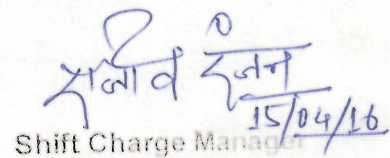 राजीव रंजन
15/04/16
Shift Charge Manager